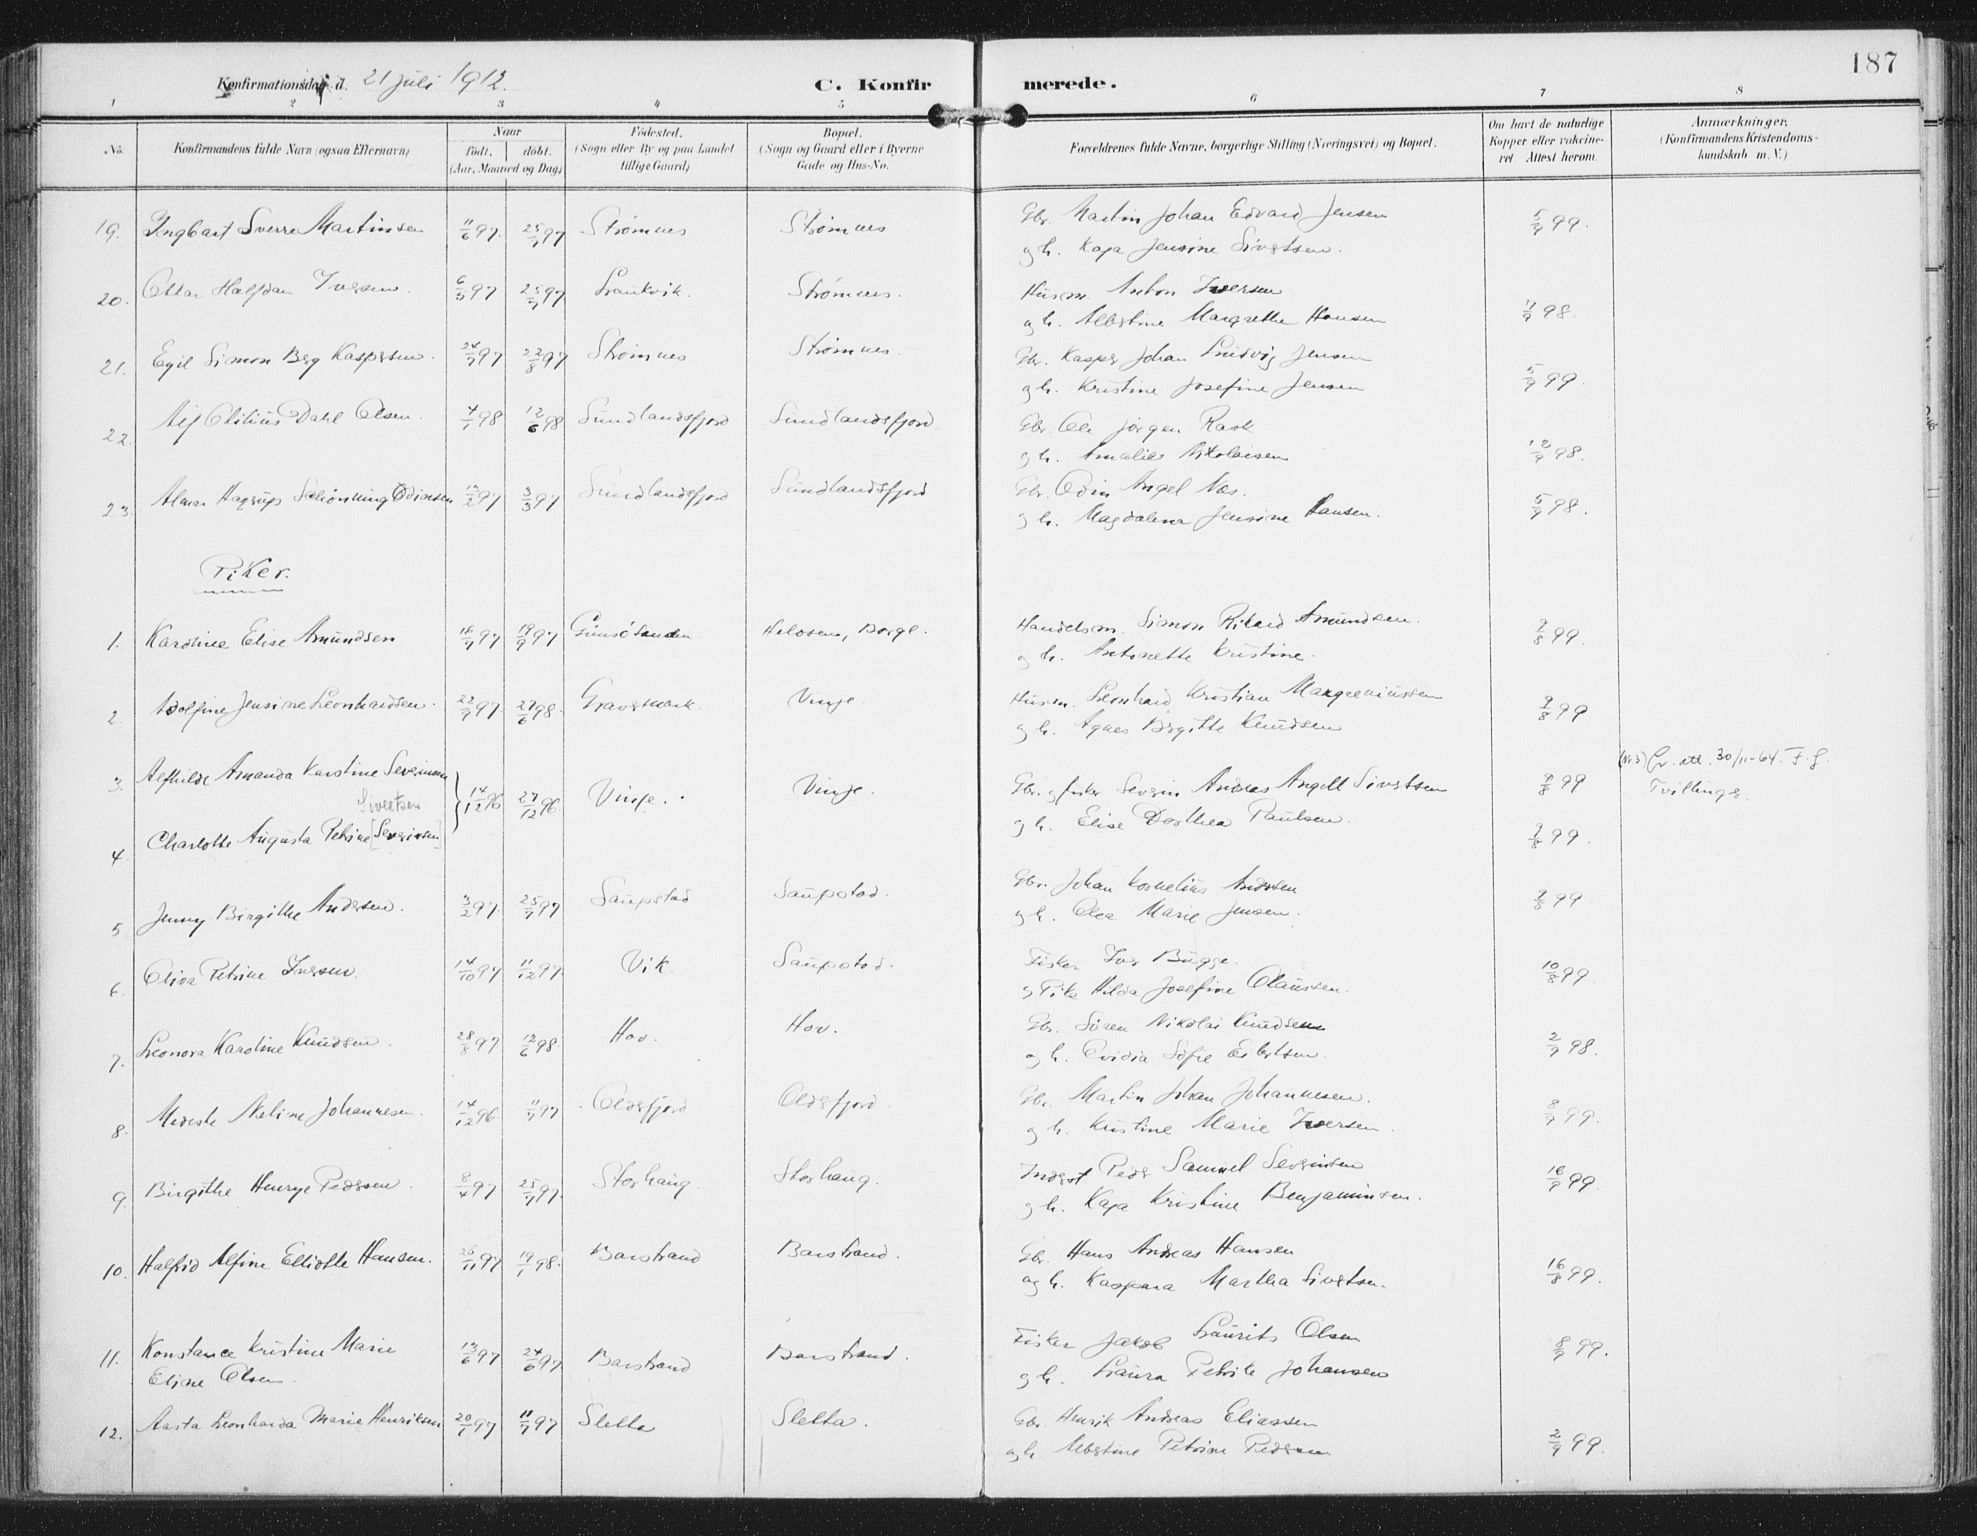 187
Konfirmationsdag d. 21 Juli 1912.
C. Konfirmerede.
1 2 3 4 5 6 7 8
No. Konfirmandens fulde Navn (ogsaa Efternavn) Naar født. døbt. (Aar, Maaned og Dag) Fødested. (Sogn eller By og paa Landet tillige Gaard) Bopæl. (Sogn og Gaard eller i Byerne Gade og Hus-No. Forældrenes fulde Navne, borgerlige Stilling (Næringsvei) og Bopæl. Om havt de naturlige Kopper eller vakcineret Attest herom. Anmærkninger. (Konfirmandens Kristendomskundskab m. V.)
19. Ingbart Sverre Martinsen 11/6 97. 25/7 97 Strømnes Strømnes Gbr. Martin Johan Edvard Jensen 5/9 99.
og h. Kaja Jensine Sivertsen.
20. Ottar Halfdan Iversen 6/5 97 25/7 97 Laukvik. Strømnes. Husm. Anton Iversen
og h. Albertine Margrethe Hansen 98.
21. Egil Simon Berg Kaspersen. 24/7 97 22/8 97 Strømnes Strømnes. Gbr. Kasper Johan Ludvig Jensen
og h. Kristine Josefine Jensen 5/9 99.
22. Alf Otilius Dahl Olsen. 98 12/6 98 Sundlandsfjord Sundlandsfjord Gbr. Ole Jørgen Rask
og h. Amalie Nikolaisen 98.
23. Almar Hagrup Schönning Odinsen 97 3/3 97 Sundlandsfjord Sundlandsfjord Gbr. Odin Angel Næs.
og h. Magdalena Jensine Hansen. 5/9 98.
Piker.
1. Karoline Elise Amundsen 16/7 97 19/9 97 Gimsøsanden. Helosen, Borge. Handelsm. Simon Rikard Amundsen.
og h. Antonette Kristine. 99.
2. Adolfine Jensine Leonhardsen. 22/9 97 27/6 98. Gravermark. Vinje. Husm. Leonhard Kristian Margreniussen
og h. Agnes Birgitte Knudsen 99
3. Alfhilde Amanda Karstine Severinsen 14/12 96 27/12 96 Vinje. Vinje. Gbr. og fisker Severin Andreas Angell Sivertsen 99 (Nr. 3) Cr. att. 30/11-64. F.J.
Sivertsen Tvillinger.
4. Charlotte Augusta Petrine [Severinsen] og h. Elise Dorthea Paulsen. 99.
5. Jenny Birgithe Andersen. 3/2 97. 25/7 97 Saupstad Saupstad. Gbr. Johan Kornelius Andersen
og h. Olea Marie Jensen. 99.
6. Oliva Petrine Iversen. 14/10 97 11/12 97. Vik. Saupstad. Fisker Iver Bugge.
og Pike Hilda Josefine Olaussen. 10/8 99.
7. Leonora Karoline Knudsen. 28/8 97 12/6 98. Hov. Hov. Gbr. Sören Nikolai Knudsen
og h. Ovidia Sofie Eilertsen. 2/9 98.
8. Meresta Neline Johannesen. 14/12 96. 11/7 97 Oldsfjord Oldsfjord Gbr. Martin Johan Johannesen.
og h. Kristine Marie Iversen. 8/9 99.
9. Birgithe Henrye Pedersen. 8/4 97 25/7 97. Storhaug. Storhaug. Inderst Peder Samuel Severinsen 16/9 99.
og h. Kaja Kristine Benjaminsen.
10. Halfrid Alfine Elliotte Hansen. 26/11 97 19/1 98. Barstrand Barstrand. Gbr. Hans Andreas Hansen
og h. Kaspara Martha Sivertsen. 16/8 99.
11. Konstance Kristine Marie 13/6 97 24/6 97 Barstrand Barstrand. Fisker Jakob Laurits Olsen 8/9 99.
Eline Olsen. og h. Laura Petrike Johansen
12. Aasta Leonharda Marie Henriksen 20/1 97 11/7 97 Sletta Sletta. Gbr. Henrik Andreas Eliassen
og h. Albertine Petrine Pedersen 2/9 99.